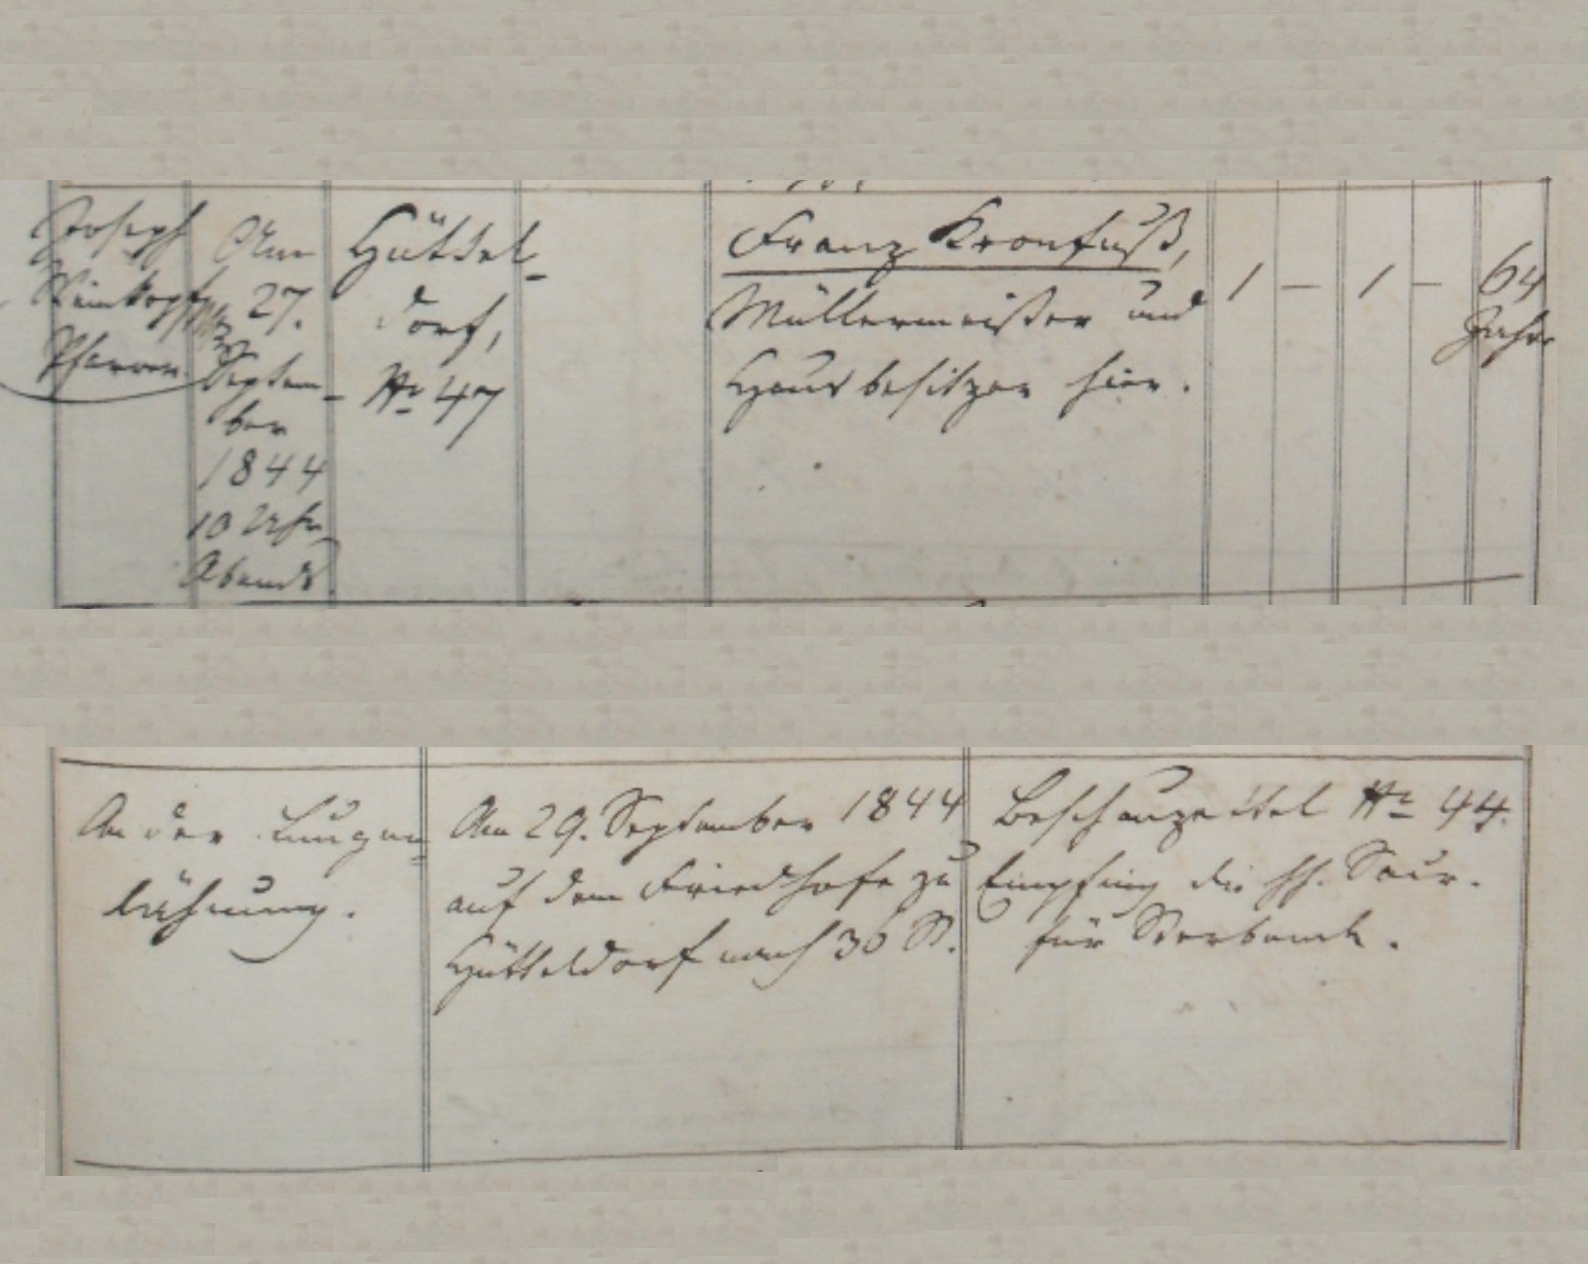 Joseph
Weinkopf
Pfarrer
Am
27.
Septem-
ber
1844
10 Uhr
Abends
Hüttel-
dorf,
Nr 47
Franz Kronfuß,
Müllermeister und
Hausbesitzer hier.
1 — 1 — 64
Jahre
An der Lungen-
lähmung.
Am 29. September 1844
auf dem Friedhofe zu
Hütteldorf nach 36 St.
Beschauzettel Nr 44.
Empfing die hh. Sacr.
für Sterbende.